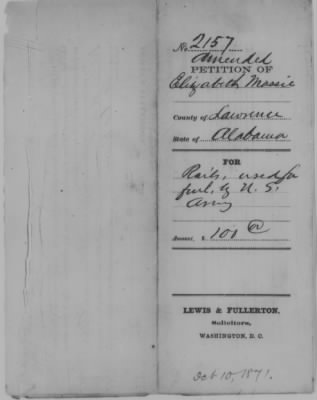 No. 2157
Amended
PETITION OF
Elizabeth Massie
County of Lawrence
State of Alabama
FOR
Rails, used for
fuel, by U. S.
Army
Amount, $ 100 00
LEWIS & FULLERTON,
Solicitors,
WASHINGTON, D. C.
Oct 10, 1871.